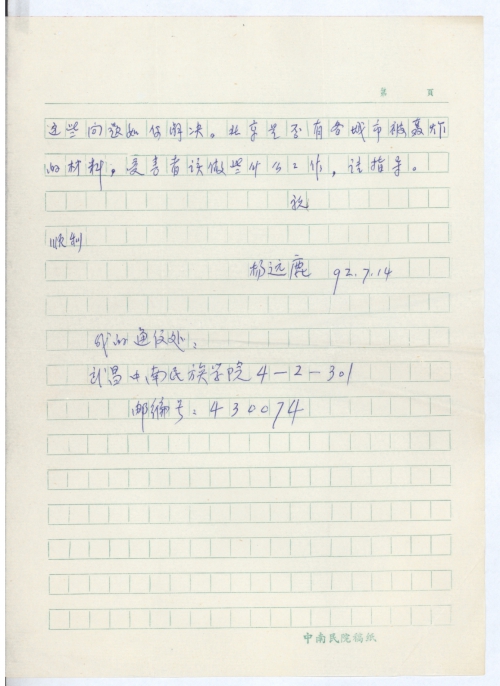 第 頁
这些问题如何解决。北京是否有各城市被轰炸
的材料，受害者该做些什么工作，请指导。
祝
顺利
杨远鹿 92.7.14
我的通仪处：
武昌中南民族学院4-2-301
邮编号：430074
中南民院稿纸